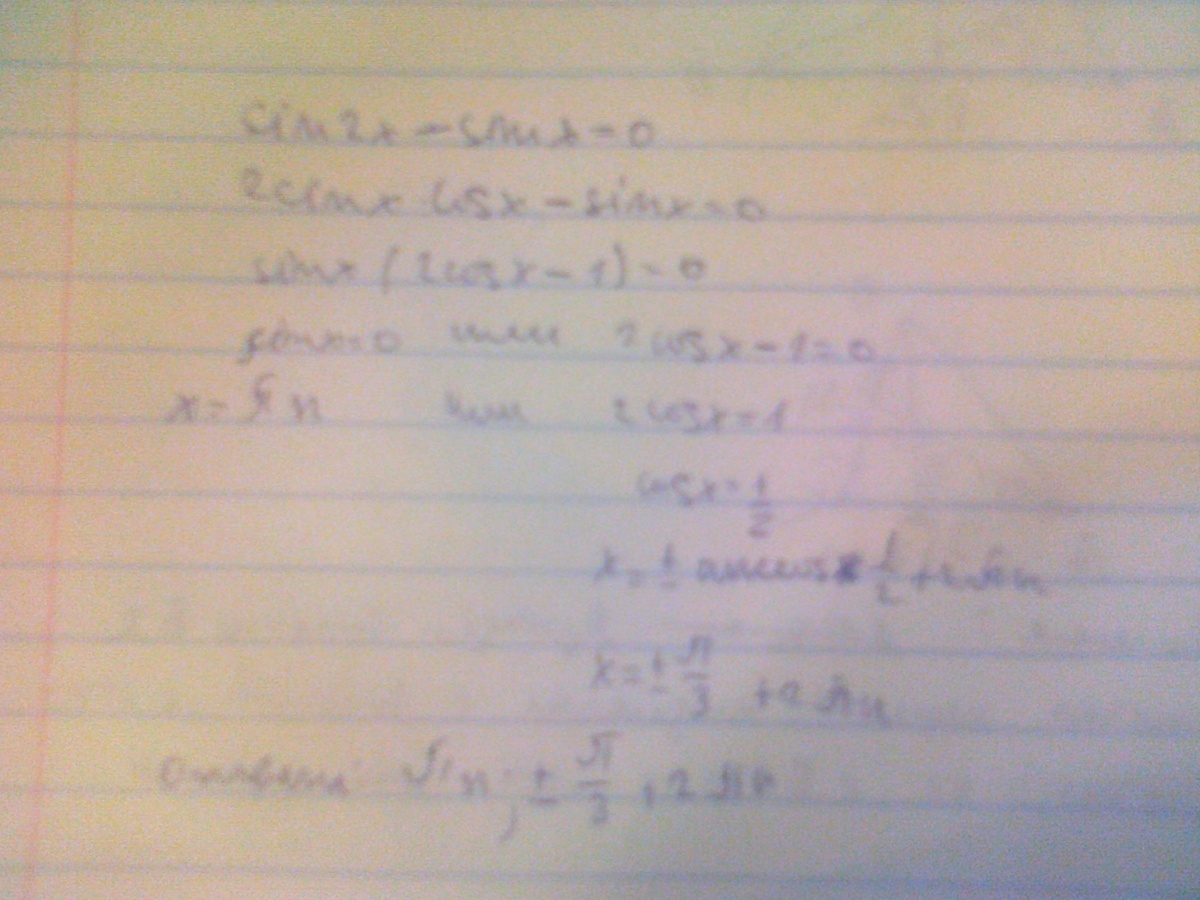 sin2x - sinx = 0
2sinx cosx - sinx = 0
sinx (2cosx - 1) = 0
sinx = 0 или 2cosx - 1 = 0
x = πn или 2cosx = 1
cosx = 1/2
x = ± arccos 1/2 + 2πn
x = ± π/3 + 2πn
Ответ: πn; ± π/3 + 2πn